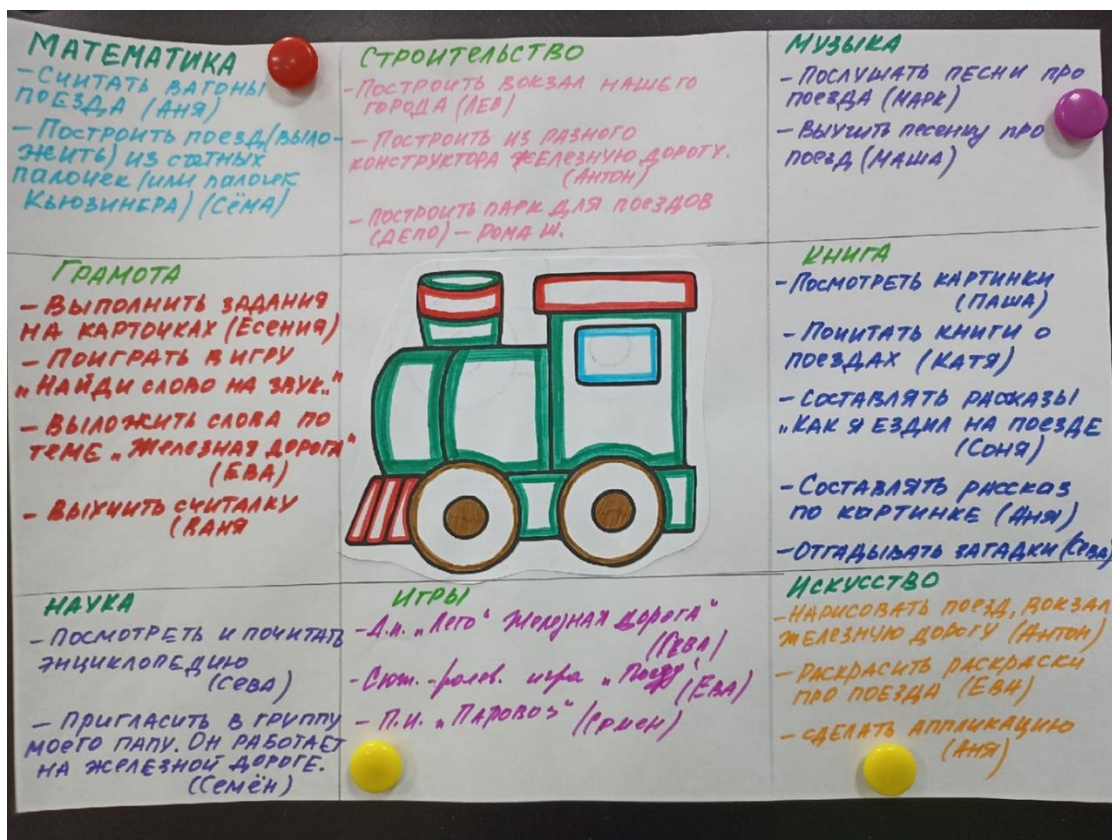 МАТЕМАТИКА
– Считать вагоны
поезда (Аня)
– Построить поезд (выло-
жить) из счётных
палочек (или палочек
Кьюзинера) (Сёма)
СТРОИТЕЛЬСТВО
– Построить вокзал нашего
города (Лев)
– Построить из разного
конструктора железную дорогу.
(Антон)
– Построить парк для поездов
(депо) – Рома Ш.
МУЗЫКА
– Послушать песни про
поезда (Марк)
– Выучить песенку про
поезд (Маша)
ГРАМОТА
– Выполнить задания
на карточках (Есения)
– Поиграть в игру
„Найди слово на звук.."
– Выложить слова по
теме „Железная дорога"
(Ева)
– Выучить считалку
(Ваня
КНИГА
– Посмотреть картинки
(Паша)
– Почитать книги о
поездах (Катя)
– Составлять рассказы
„Как я ездил на поезде
(Соня)
– Составлять рассказ
по картинке (Аня)
– Отгадывать загадки (Сева)
НАУКА
– Посмотреть и почитать
энциклопедию
(Сева)
– Пригласить в группу
моего папу. Он работает
на железной дороге.
(Семён)
ИГРЫ
– Д.и. „Лего" Железная дорога"
(Сева)
– Сюж.-ролев. игра „Поезд"
(Ева)
– П.и. „Паровоз" (Семен)
ИСКУССТВО
– Нарисовать поезд, вокзал
железную дорогу (Антон)
– Раскрасить раскраски
про поезда (Ева)
– Сделать аппликацию
(Аня)